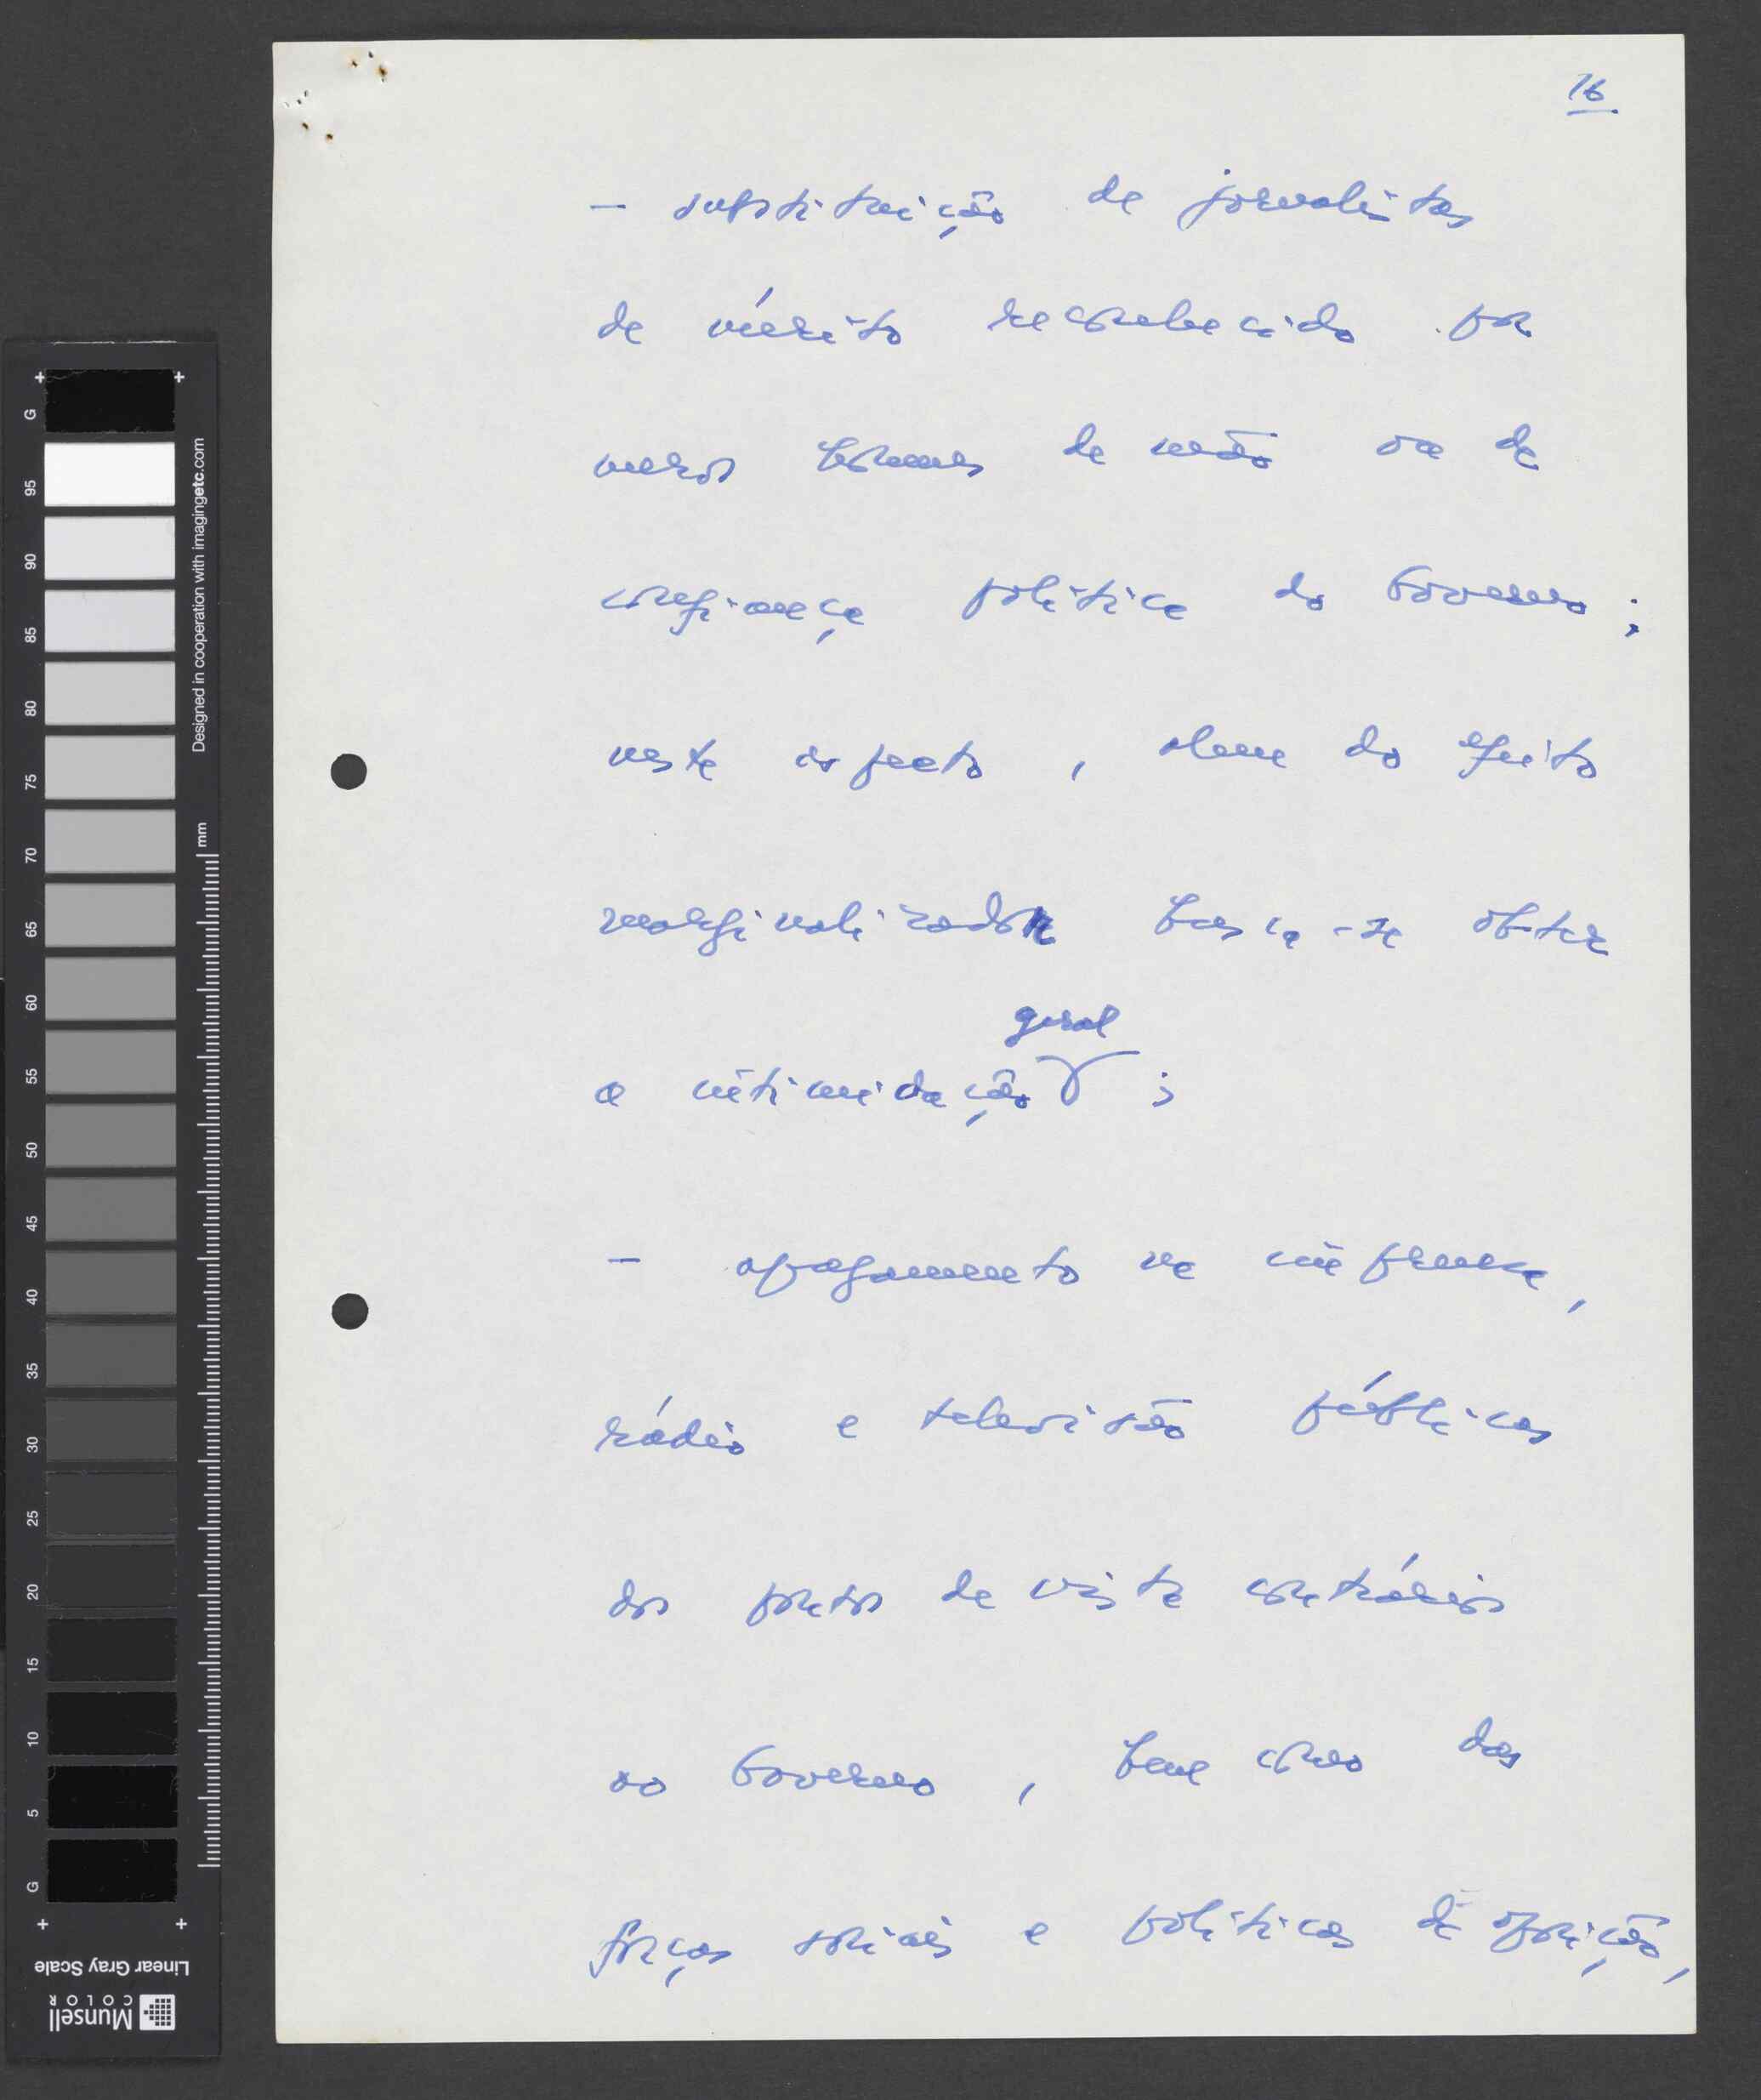 16
- substituição de jornalistas
de mérito reconhecido por
meros homens de mão ou de
confiança política do Governo ;
neste aspecto , alem do efeito
marginalizador busca-se obter
geral
a intimidação ;
- apagamento na imprensa,
rádio e televisão públicas
dos pontos de vista contrários
ao Governo , bem como das
forças sociais e políticas de oposição,
G
95
90
85
80
75
70
65
60
55
50
45
40
35
30
25
20
15
10
5
G
Designed in cooperation with imagingetc.com
mm
Linear Gray Scale
Munsell
COLOR